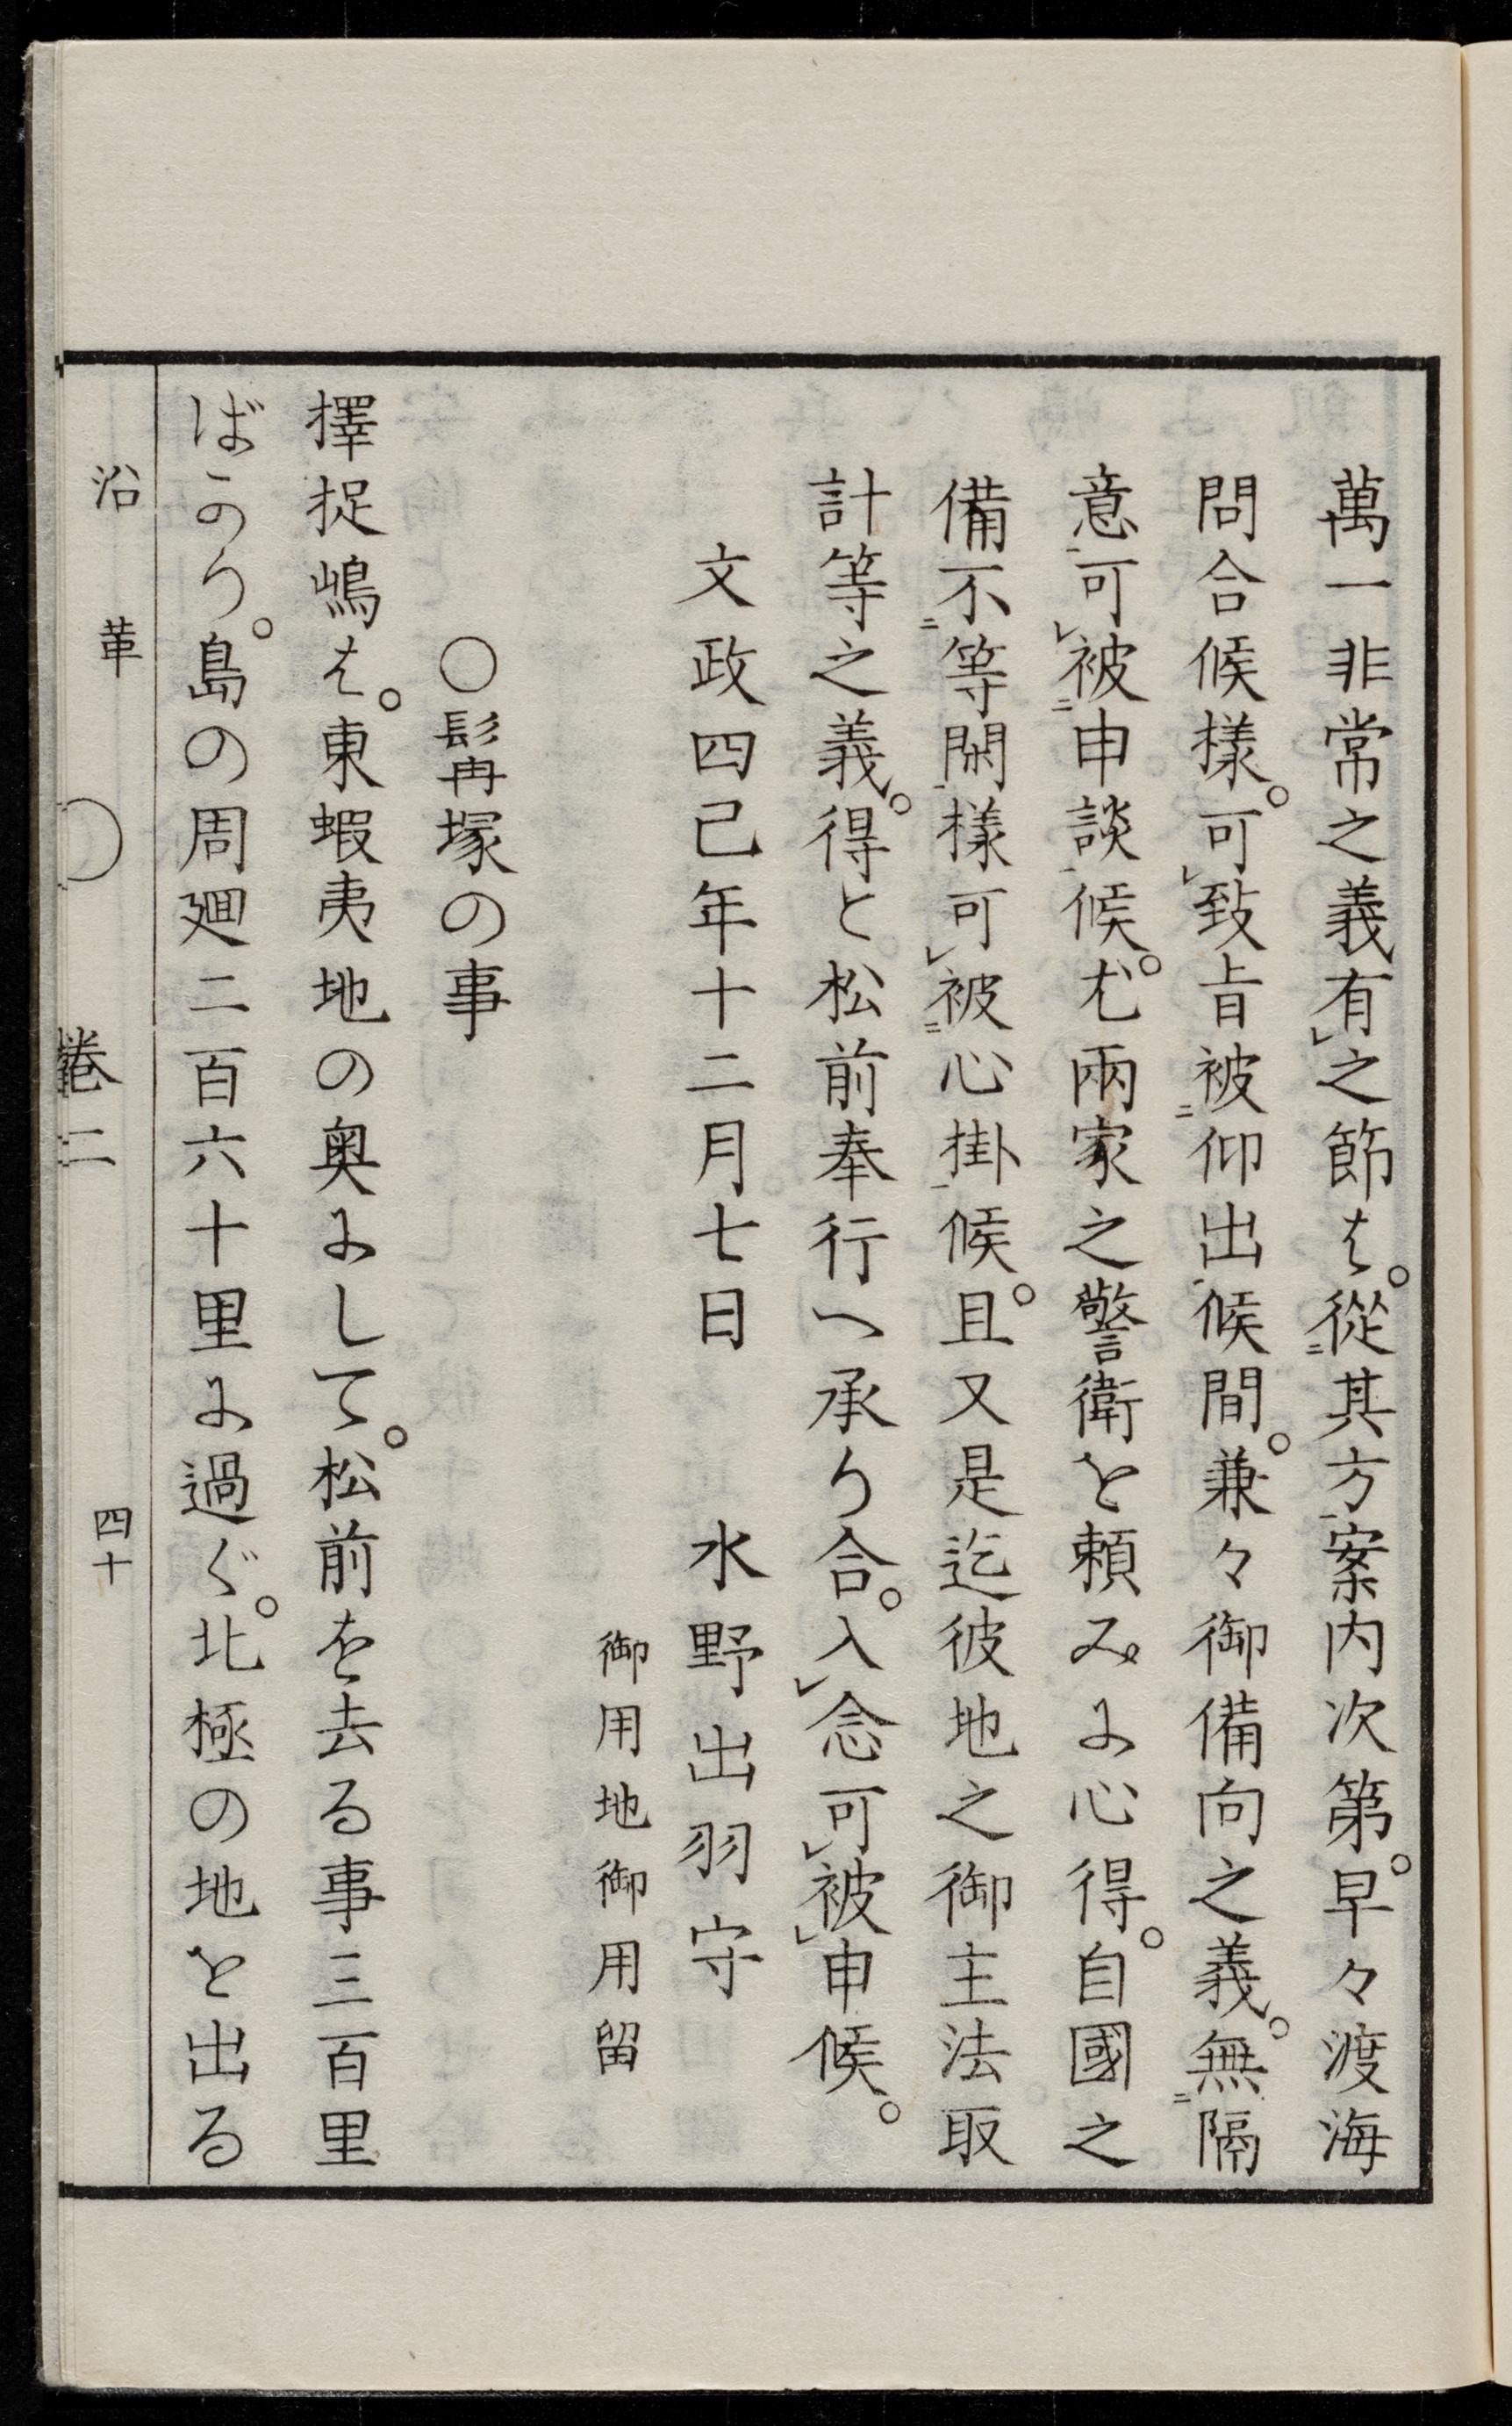 萬一非常之義有㆑之節は。從㆓其方㆒案内次第。早々渡海
問合候樣。可㆑致旨被㆓仰出㆒候間。兼々御備向之義。無㆓隔
意㆒可㆑被㆓申談㆒候。尤兩家之警衞を頼みに心得。自國之
備不㆓等閑㆒樣可㆑被㆓心掛㆒候。且又是迄彼地之御主法取
計等之義。得と松前奉行へ承り合。入㆑念可㆑被㆑申候。
文政四巳年十二月七日　水野出羽守
御用地御用留
○髯塚の事
擇捉嶋は。東蝦夷地の奥にして。松前を去る事三百里
ばかり。島の周廻二百六十里に過ぐ。北極の地を出る
沿革　○　卷二　四十